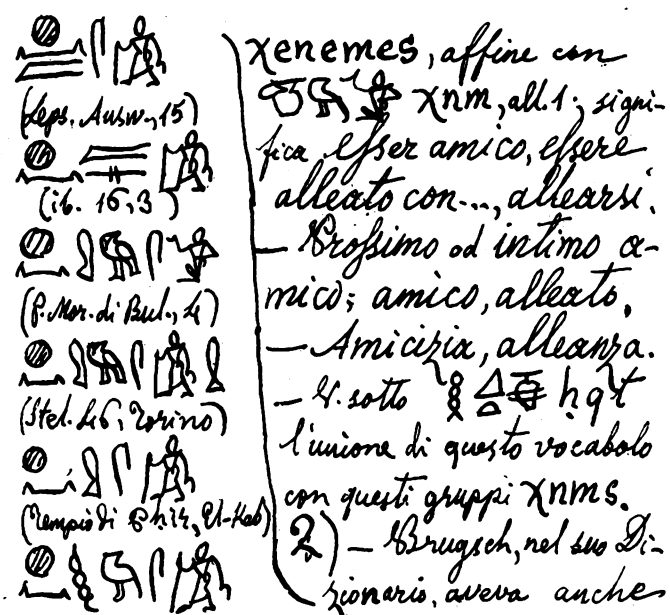 (Leps. Ausw., 15)
(ib. 16, 3)
(P. Mor. di Bul., 4)
(Stel. 46, Torino)
(Tempio di Chir, El-Kab)
χenemes, affine con
χnm, all. 1; signi-
fica Esser amico, essere
alleato con..., allearsi.
— Prossimo od intimo a-
mico; amico, alleato.
— Amicizia, alleanza.
— V. sotto ḥqt
l'unione di questo vocabolo
con questi gruppi χnms.
2) — Brugsch, nel suo Di-
zionario, aveva anche